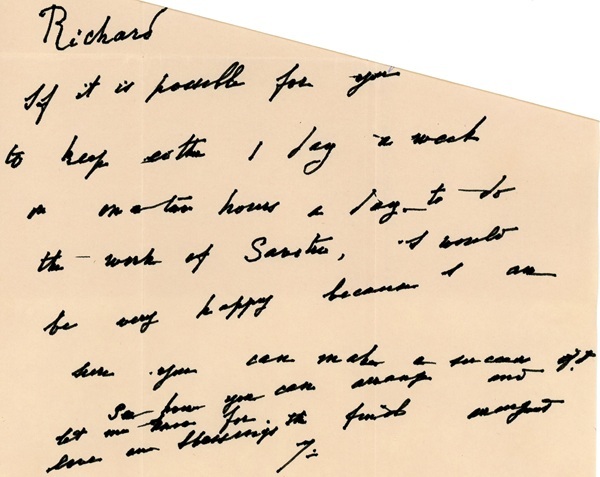 Richard
If it is possible for you
to keep either 1 day a week
or one or two hours a day to do
the work of Savitri, I would
be very happy because I am
sure you can make a success of it.
See how you can arrange and
let me know for the final
love and blessings